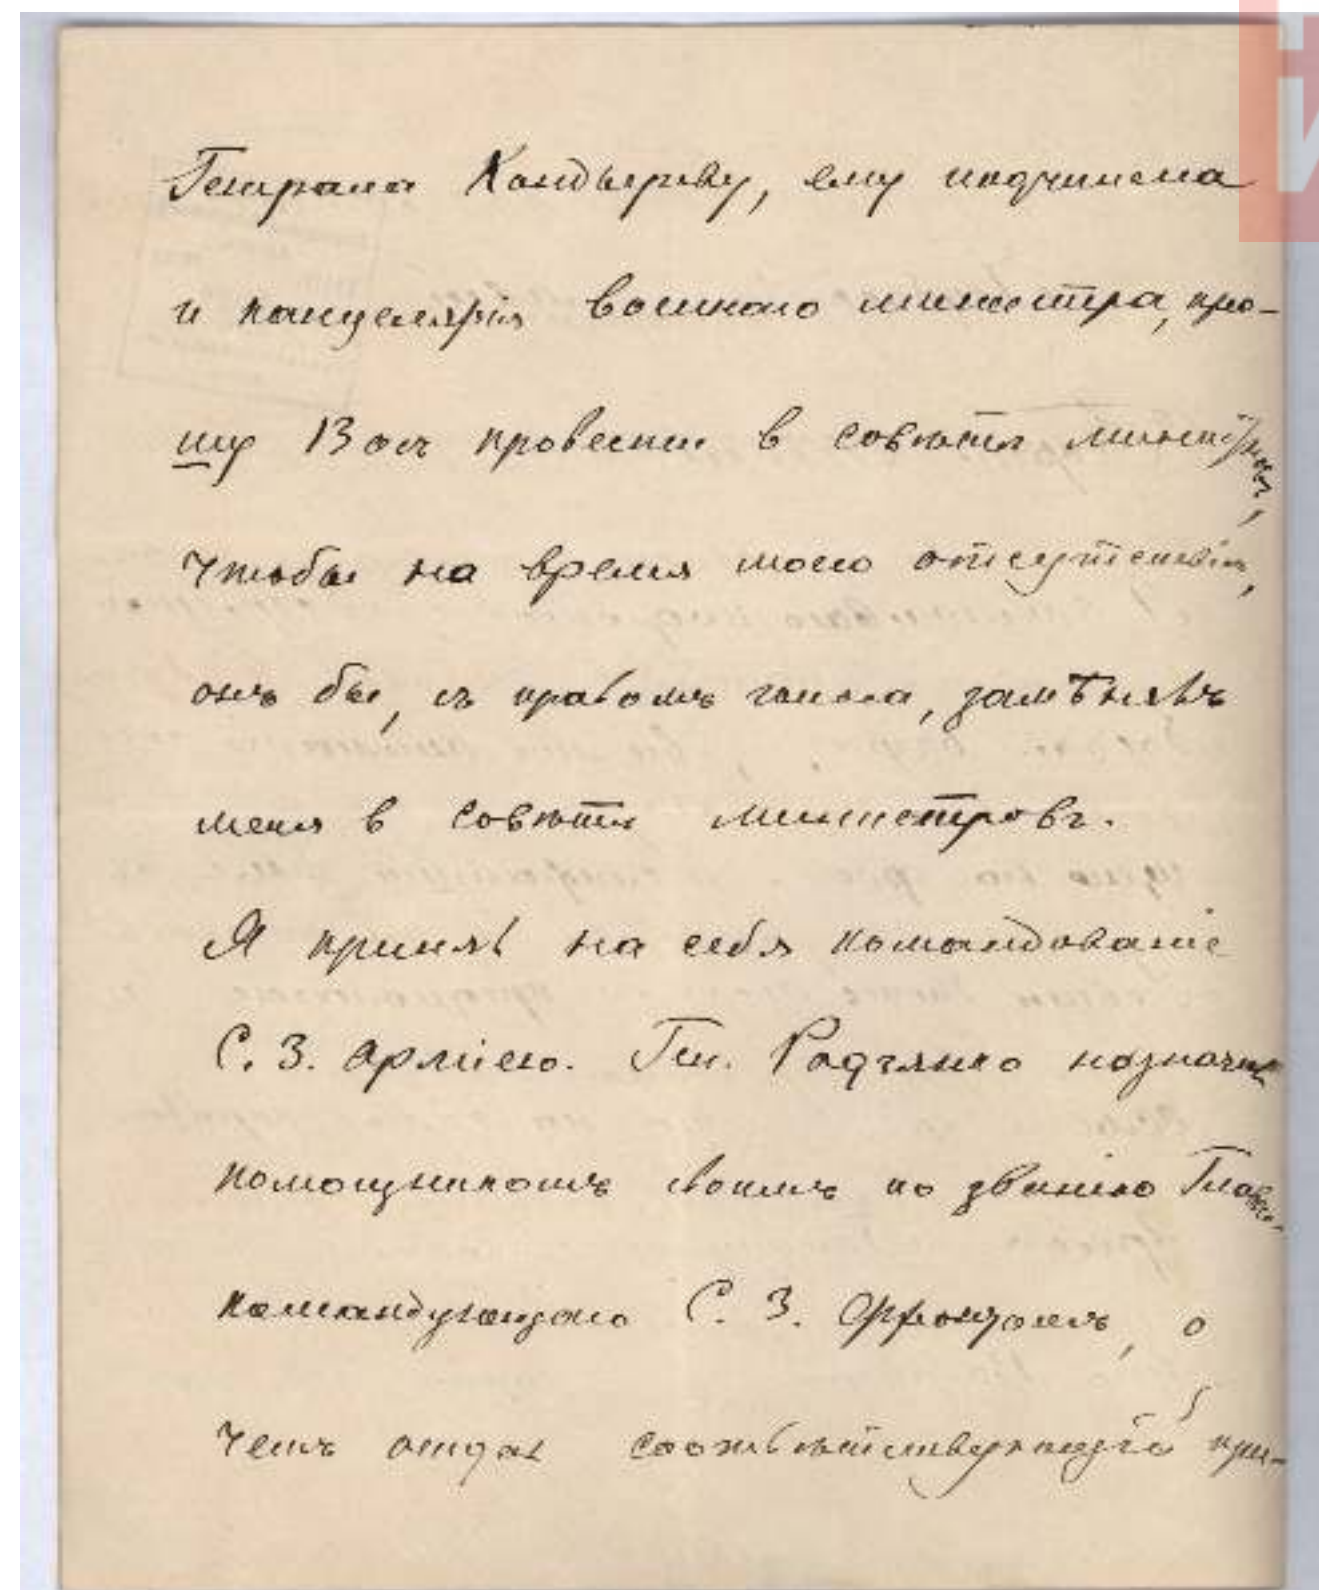 Генерала Кондыреву, ему подчинена
и канцелярія военнаго министра, про-
шу Вас провести в совѣтѣ министровъ,
чтобы на время моего отсутствія,
онъ бы, съ правомъ голоса, замѣнялъ
меня в совѣтѣ министровъ.
Я принялъ на себя командованіе
С. З. Арміею. Ген. Родзянко назначил
помощникомъ своимъ по званію Главно-
командующаго С. З. Фронтомъ, о
чемъ отдал соотвѣтствующій при-